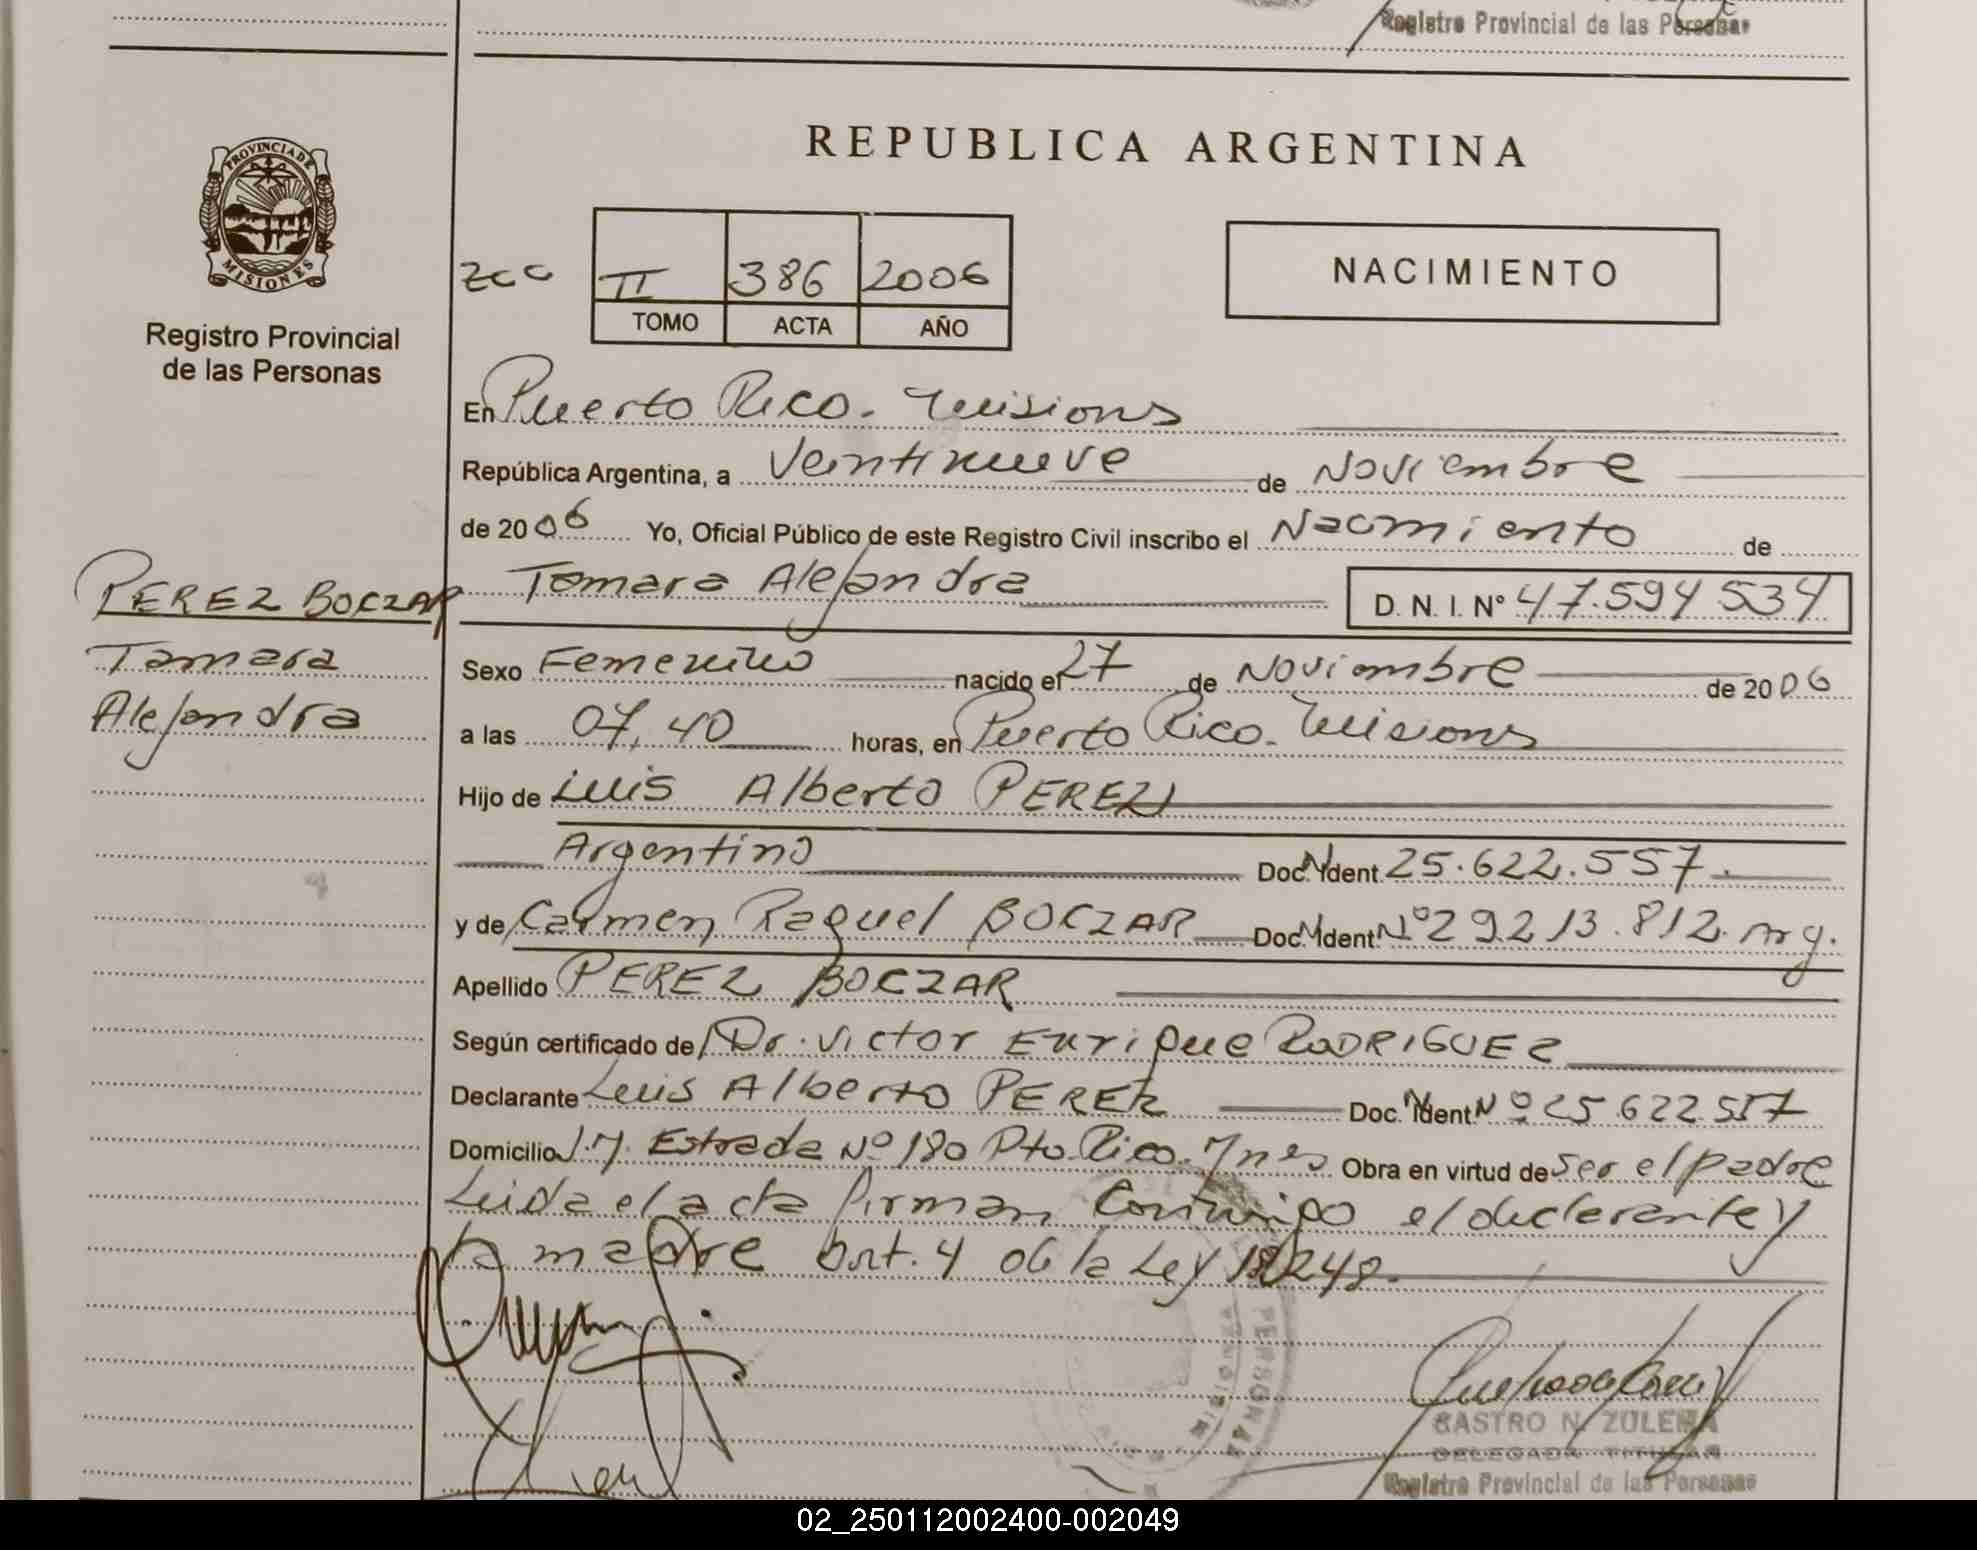 Registro Provincial de las Personas
REPUBLICA ARGENTINA
PROVINCIA DE
MISIONES
Registro Provincial
de las Personas
zcc II 386 2006
TOMO ACTA AÑO
NACIMIENTO
En Puerto Rico. Misiones
República Argentina, a Veintinueve de Noviembre
de 2006 Yo, Oficial Público de este Registro Civil inscribo el Nacimiento de
Tamara Alejandra D. N. I. Nº 47.594 534
PEREZ BOCZAR
Tamara
Alejandra
Sexo Femenino nacido el 27 de Noviembre de 2006
a las 07,40 horas, en Puerto Rico. Misiones
Hijo de Luis Alberto PEREZ
Argentino Doc. Ident. 25.622.557.
y de Carmen Raquel BOCZAR Doc. Ident. Nº 29.213.812. Arg.
Apellido PEREZ BOCZAR
Según certificado de Dr. Victor Enrique RODRIGUEZ
Declarante Luis Alberto PEREZ Doc. Ident. Nº 25 622.557
Domicilio J.M. Estrada Nº 180 Pto. Rico. Mnes Obra en virtud de ser el padre
Leida el acta firman Conmigo el declarante y
la madre Art. 4 de la Ley 18248.
PERSONAS
MISIONES
CASTRO N. ZULEMA
DELEGADA TITULAR
Registro Provincial de las Personas
02_250112002400-002049